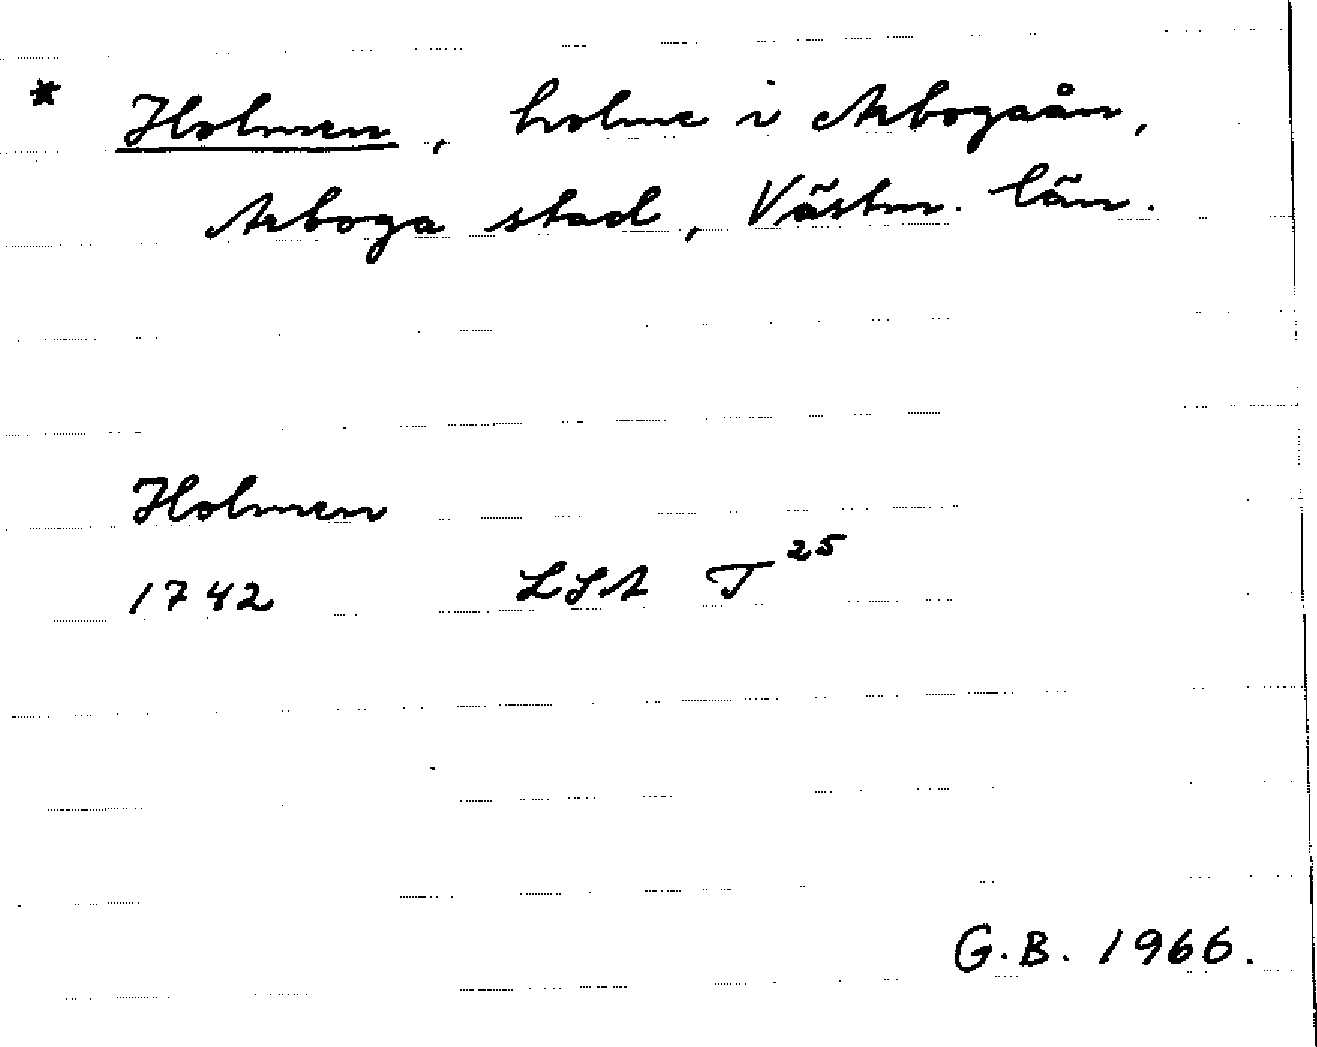 * Holmen, holme i Arbogaån,
Arboga stad, Västm. län.
Holmen
1742 LSA T 25
G.B. 1966.